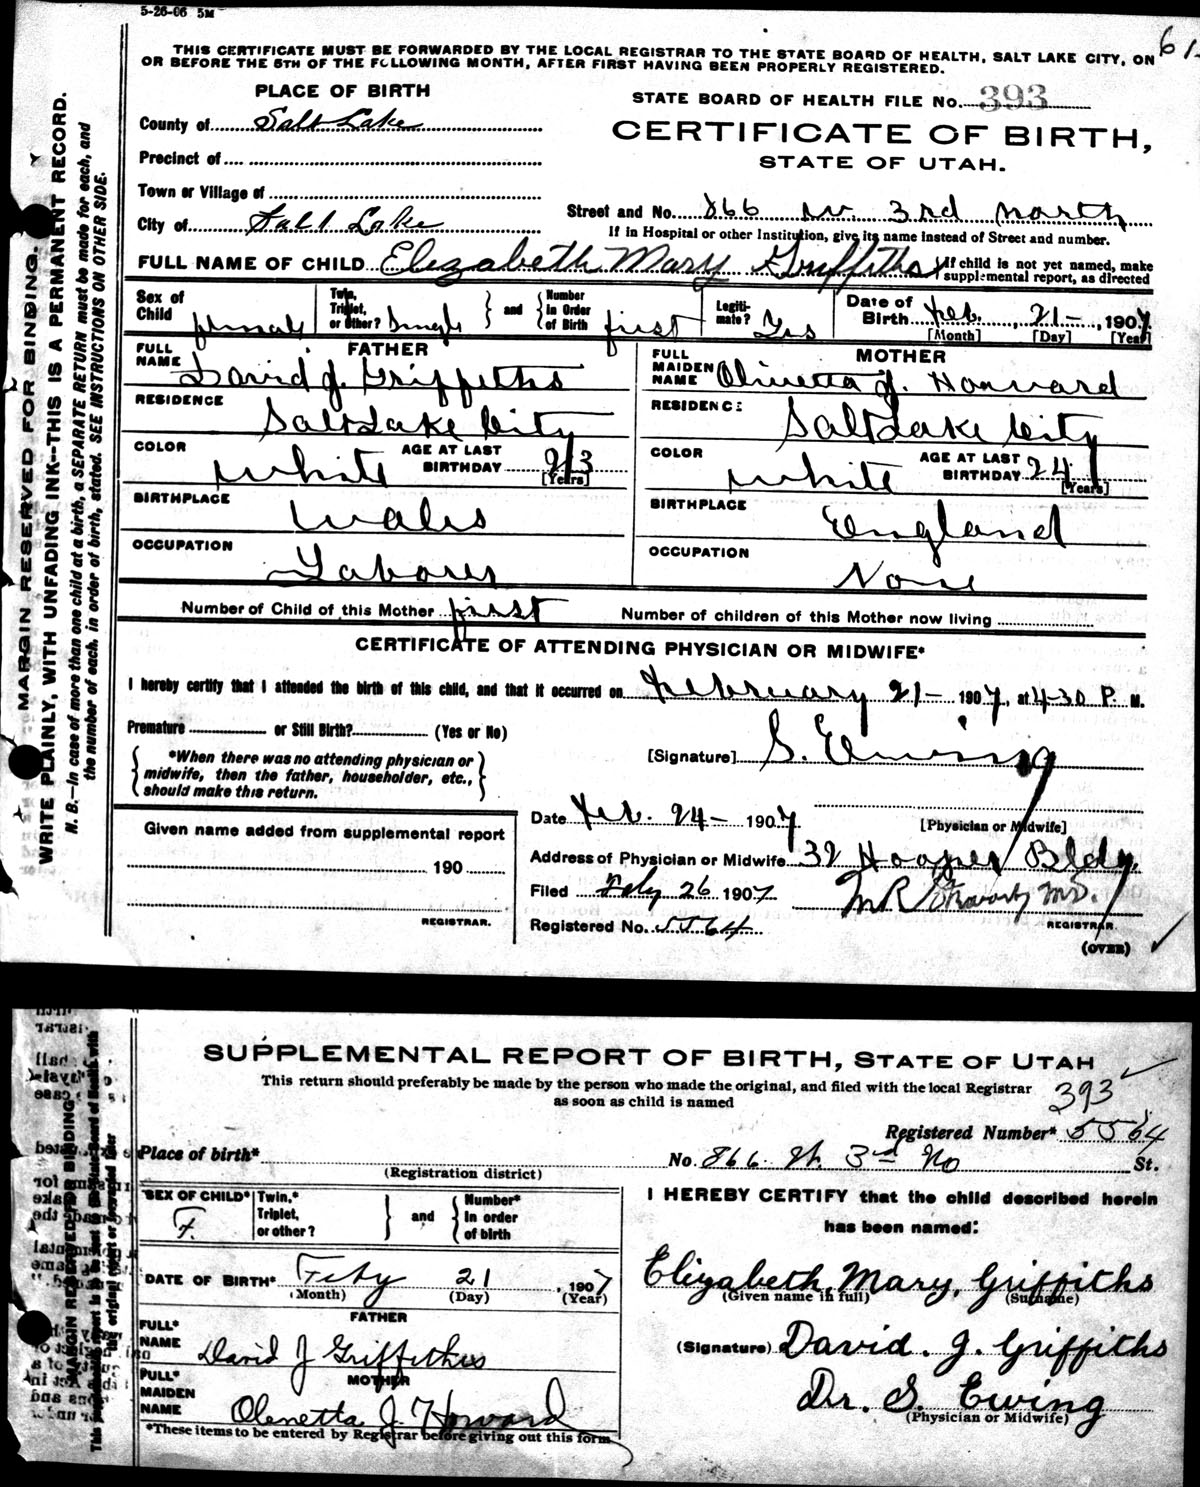 5-26-06 5M
61
THIS CERTIFICATE MUST BE FORWARDED BY THE LOCAL REGISTRAR TO THE STATE BOARD OF HEALTH, SALT LAKE CITY, ON
OR BEFORE THE 5TH OF THE FOLLOWING MONTH, AFTER FIRST HAVING BEEN PROPERLY REGISTERED.
MARGIN RESERVED FOR BINDING.
WRITE PLAINLY, WITH UNFADING INK--THIS IS A PERMANENT RECORD.
N. B.—In case of more than one child at a birth, a SEPARATE RETURN must be made for each, and
the number of each, in order of birth, stated. SEE INSTRUCTIONS ON OTHER SIDE.
PLACE OF BIRTH
County of Salt Lake
Precinct of
Town or Village of
City of Salt Lake
STATE BOARD OF HEALTH FILE No. 393
CERTIFICATE OF BIRTH,
STATE OF UTAH.
Street and No. 866 W. 3rd North
If in Hospital or other Institution, give its name instead of Street and number.
FULL NAME OF CHILD Elizabeth Mary Griffiths
If child is not yet named, make
supplemental report, as directed
Sex of Child Female
Twin, Triplet, or Other? Single
and
Number In Order of Birth first
Legiti-mate? Yes
Date of Birth Feb. 21-, 1907
[Month] [Day] [Year]
FATHER
FULL NAME David J. Griffeths
RESIDENCE Salt Lake City
COLOR White
AGE AT LAST BIRTHDAY 23
[Years]
BIRTHPLACE Wales
OCCUPATION Laborer
MOTHER
FULL MAIDEN NAME Olinetta J. Howard
RESIDENCE Salt Lake City
COLOR White
AGE AT LAST BIRTHDAY 24
[Years]
BIRTHPLACE England
OCCUPATION None
Number of Child of this Mother first
Number of children of this Mother now living
CERTIFICATE OF ATTENDING PHYSICIAN OR MIDWIFE*
I hereby certify that I attended the birth of this child, and that it occurred on February 21- 1907, at 4-30 P. M.
Premature or Still Birth? (Yes or No)
*When there was no attending physician or
midwife, then the father, householder, etc.,
should make this return.
[Signature] S. Ewing
[Physician or Midwife]
Given name added from supplemental report
190
REGISTRAR.
Date Feb. 24- 1907
Address of Physician or Midwife 32 Hooper Bldg
Filed Feby 26 1907
M R Stewart M.D.
REGISTRAR.
Registered No. 5564
(OVER)
SUPPLEMENTAL REPORT OF BIRTH, STATE OF UTAH
This return should preferably be made by the person who made the original, and filed with the local Registrar
as soon as child is named
393
Registered Number* 5564
Place of birth* No. 866 W. 3rd No St.
(Registration district)
SEX OF CHILD* F.
Twin,* Triplet, or other?
and
Number* in order of birth
DATE OF BIRTH* Feby 21, 1907
(Month) (Day) (Year)
FATHER
FULL* NAME David J Griffethes
MOTHER
FULL* MAIDEN NAME Olenetta J. Howard
*These items to be entered by Registrar before giving out this form
I HEREBY CERTIFY that the child described herein
has been named:
Elizabeth, Mary, Griffiths
(Given name in full) (Surname)
(Signature) David. J. Griffiths
Dr. S. Ewing
(Physician or Midwife)